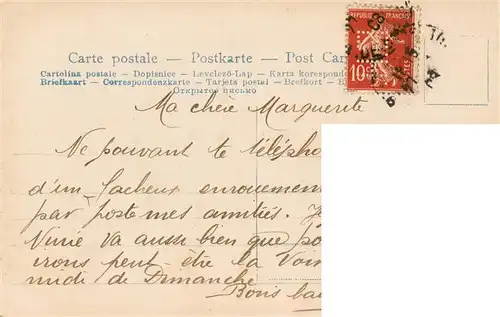 Carte postale — Postkarte — Post Car
Cartolina postale — Dopisnice — Levelező-Lap — Karta korespond
Briefkaart — Correspondenzkarte — Tarjeta postal — Brefkort — B
Открытое письмо
RÉPUBLIQUE FRANÇAISE
10
Ma chère Marguerite
Ne pouvant te téléph
d'un fâcheux enrouemen
par poste mes amitiés. J
va aussi bien que po
irons peut-être la Voir
midi de Dimanche
Bons bai